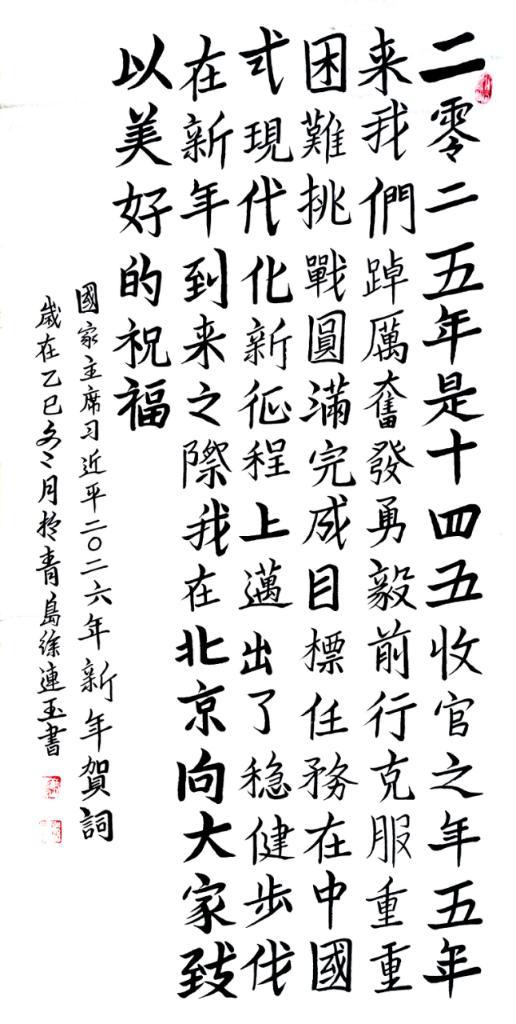 二零二五年是十四五收官之年五年
来我們踔厲奮發勇毅前行克服重重
困難挑戰圓滿完成目標任務在中國
式現代化新征程上邁出了稳健步伐
在新年到来之際我在北京向大家致
以美好的祝福
國家主席习近平二〇二六年新年賀詞
歲在乙巳冬月於青島徐連玉書